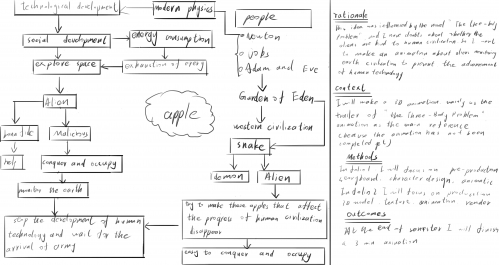 technological development
modern physics
social development
energy consumption
explore space
exhaustion of energy
Alien
bona fide
Malicious
help
conquer and occupy
monitor the earth
stop the development of human
technology and wait for the
arrival of army
apple
people
Newton
Jobs
Adam and Eve
Garden of Eden
western civilization
snake
demon
Alien
try to make those apples that affect
the progress of human civilization
disappear
easy to conquer and occupy
rationale
this idea was influenced by the novel "The three-body
problem" and I have doubts about whether the
aliens are bad to human civilization so I want
to make an animation about alien monitoring
earth civilization to prevent the advancement
of human technology
context
I will make a 3D animation mainly use the
trailer of "the three-body Problem"
animation as the main reference
(because the animation has not been
completed yet)
Methods
In dalia1 I will focus on pre-production
storyboard character design, animatic
In dalia2 I will focus on production
3D model texture animation render
outcomes
At the end of semester I will finish
a 3 min animation